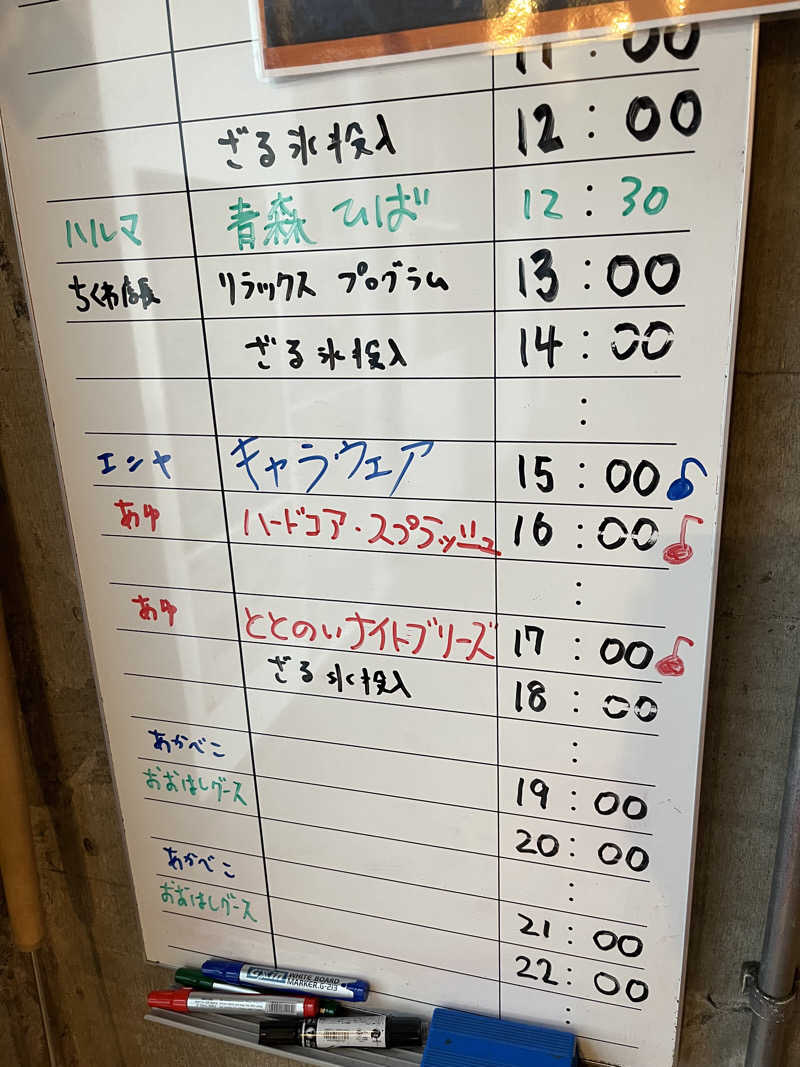 11:00
ざる氷投入 12:00
ハルマ 青森ひば 12:30
ちくわ店長 リラックス プログラム 13:00
ざる氷投入 14:00
:
エンヤ キャラ・ウェア 15:00
あゆ ハードコア・スプラッシュ 16:00
:
あゆ ととのいナイトブリーズ 17:00
ざる氷投入 18:00
:
あかべこ
おおはしグース 19:00
20:00
あかべこ :
おおはしグース 21:00
22:00
:
WHITE BOARD
MARKER.G-213